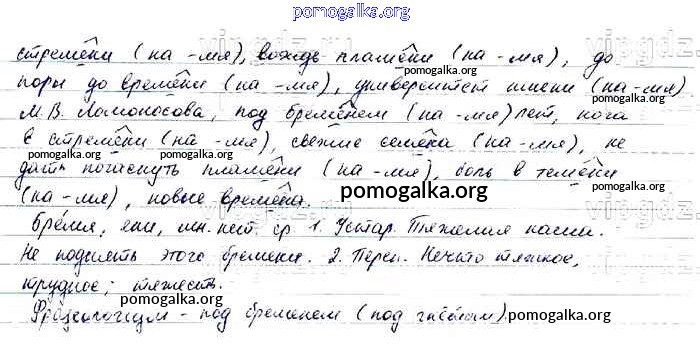 pomogalka.org
стремени (на -мя), вождь племени (на -мя), до
поры до времени (на -мя), университет имени (на -мя)
М.В. Ломоносова, под бременем (на -мя) лет, нога
в стремени (на -мя), свежие семена (на -мя), не
дать погаснуть пламени (на -мя), боль в темени
(на -мя), новые времена.
Бремя, ени, мн. нет. ср. 1. Устар. Тяжелая ноша.
Не поднять этого бремени. 2. Перен. Нечто тяжкое,
трудное; тяжесть.
Фразеологизм - под бременем (под гнётом)
pomogalka.org
pomogalka.org
pomogalka.org
pomogalka.org
pomogalka.org
pomogalka.org
pomogalka.org
pomogalka.org
pomogalka.org